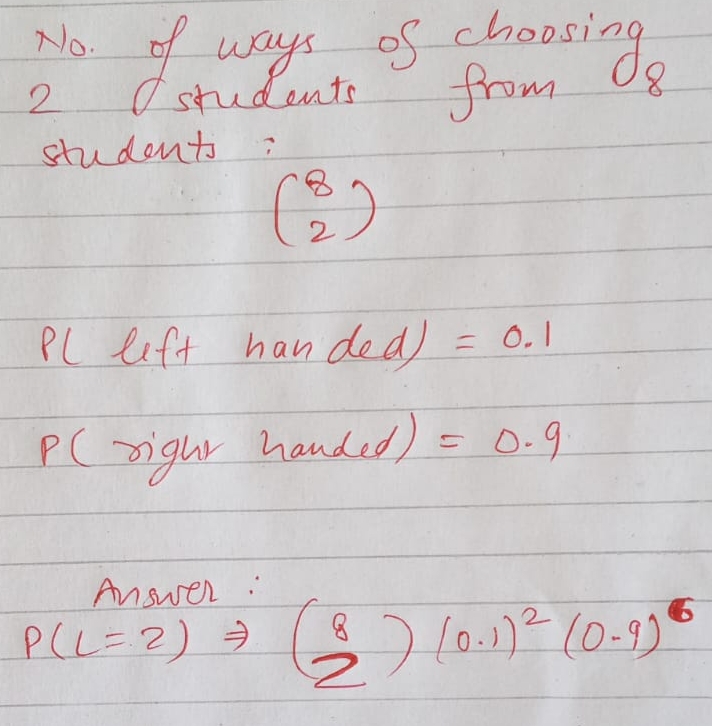 No. of ways of choosing
2 students from 8
students :
(8
2)
P( left handed) = 0.1
P( right handed) = 0.9
Answer :
P(L=2) ⇒ (8
2) (0.1)² (0.9)⁶